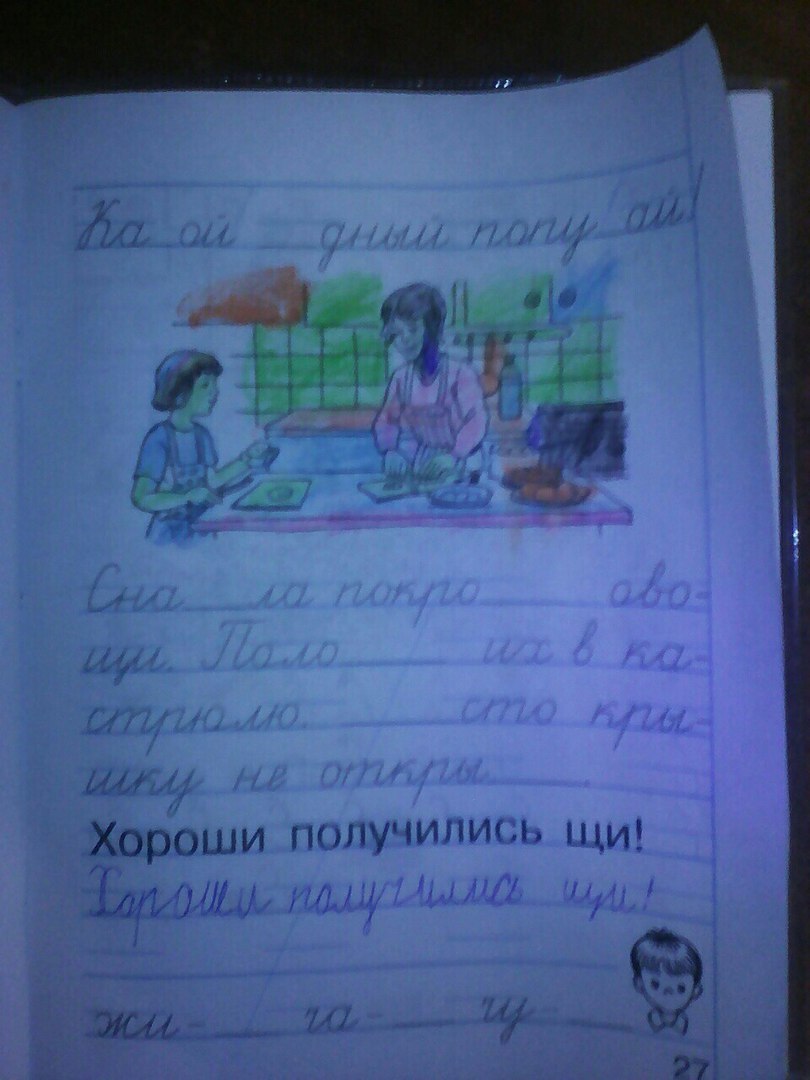 Ка ой __ дный попу ай!
Сна__ла покро____ ово-
щи. Поло____ их в ка-
стрюлю. ____сто кры-
шку не откры____.
Хороши получились щи!
Хороши получились щи!
жи-___ ча-___ чу-___
27